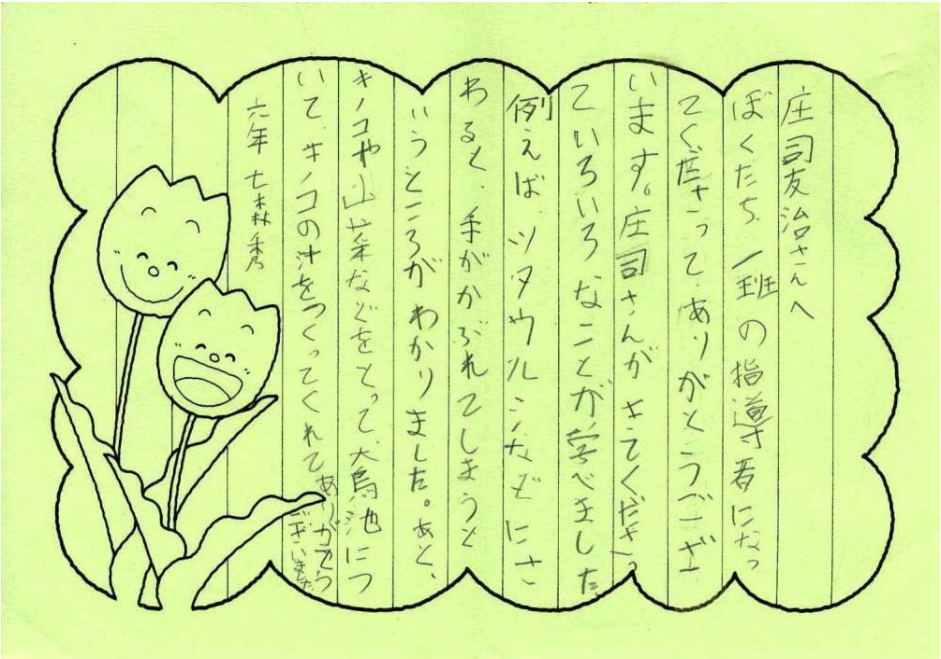 庄司友治さんへ
ぼくたち一班の指導者になっ
てくださってありがとうござ
います。庄司さんがきてくださっ
ていろいろなことが学べました
例えば、ツタウルシなぞにさ
わると、手がかぶれてしまうと
いうところがわかりました。あと、
キノコや山菜などをとって、大鳥池につ
いて、キノコの汁をつくってくれてありがとう
ございました。
六年 七森秀